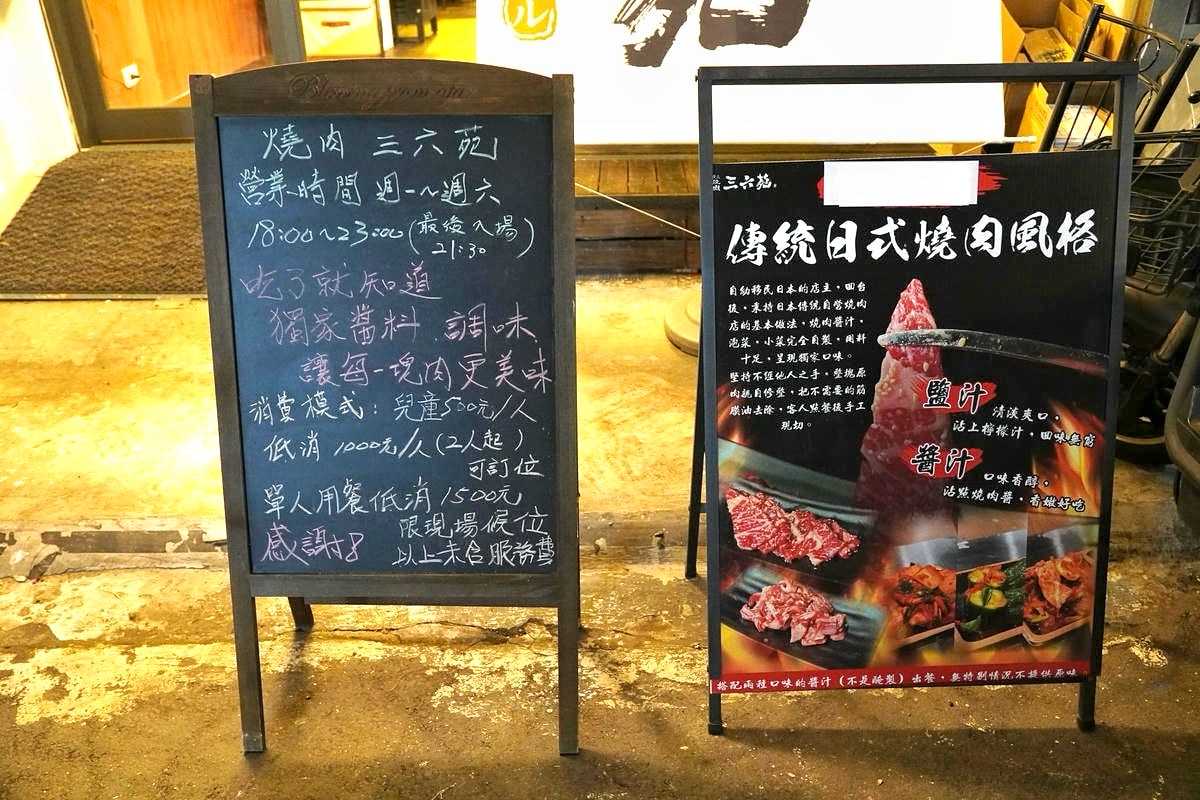 燒肉 三六苑
營業時間 週一~週六
18:00~23:00(最後入場
21:30)
吃了就知道
獨家醬料.調味
讓每一塊肉更美味
消費模式:兒童500元/人
低消 1000元/人(2人起)
可訂位
單人用餐低消 1500元
限現場候位
感謝
以上未含服務費
ル
三六苑
傳統日式燒肉風格
自幼移民日本的店主,回台
後,秉持日本傳統自營燒肉
店的基本做法,燒肉醬汁,
泡菜,小菜完全自製,用料
十足,呈現獨家口味。
堅持不經他人之手,整塊原
肉親自修整,把不需要的筋
膜油去除,客人點餐後手工
現切。
鹽汁
清淡爽口,
沾上檸檬汁,回味無窮
醬汁
口味香醇,
沾點燒肉醬,香嫩好吃
搭配兩種口味的醬汁(不是醃製)出餐,無特別情況不提供原味